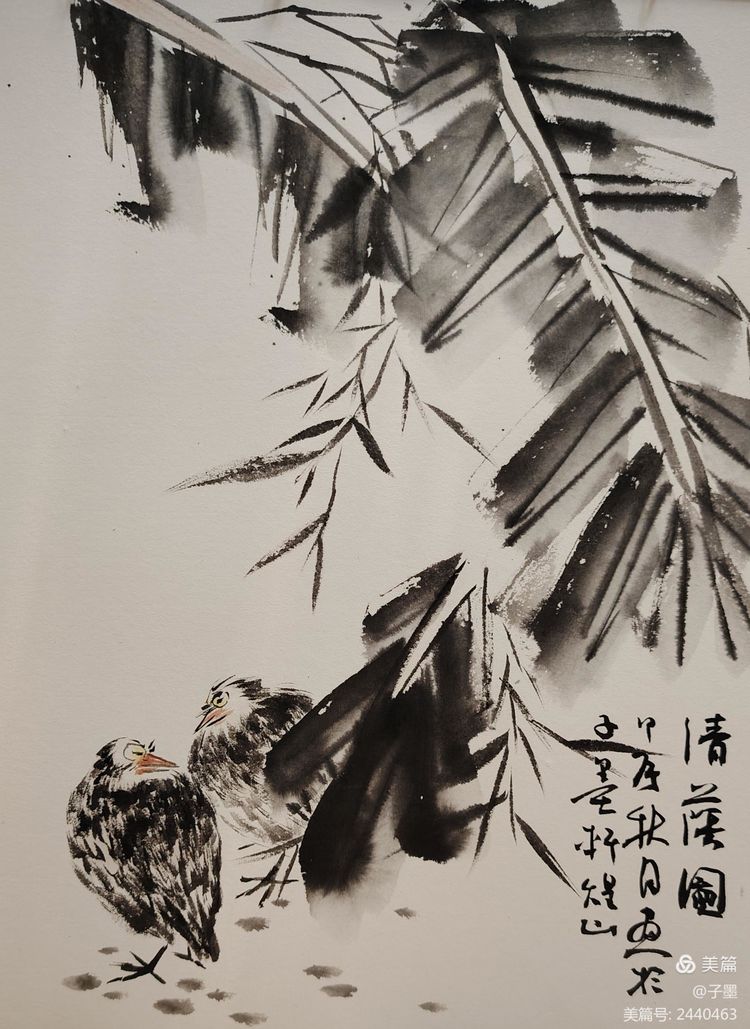 清荫圖
甲辰秋日画於
子墨轩
山
美篇
@子墨
美篇号: 2440463